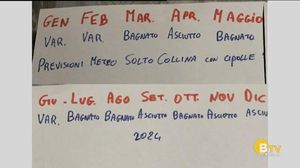 GEN FEB MAR. APR. MAGGIO
VAR. VAR BAGNATO ASCIUTTO BAGNATO
PREVISIONI METEO SOLTO COLLINA CON CIPOLLE
GIU - LUG. AGO SET. OTT. NOV DIC
VAR. BAGNATO BAGNATO ASCIUTTO BAGNATO ASCIUTTO ASCIU
2024
BTV